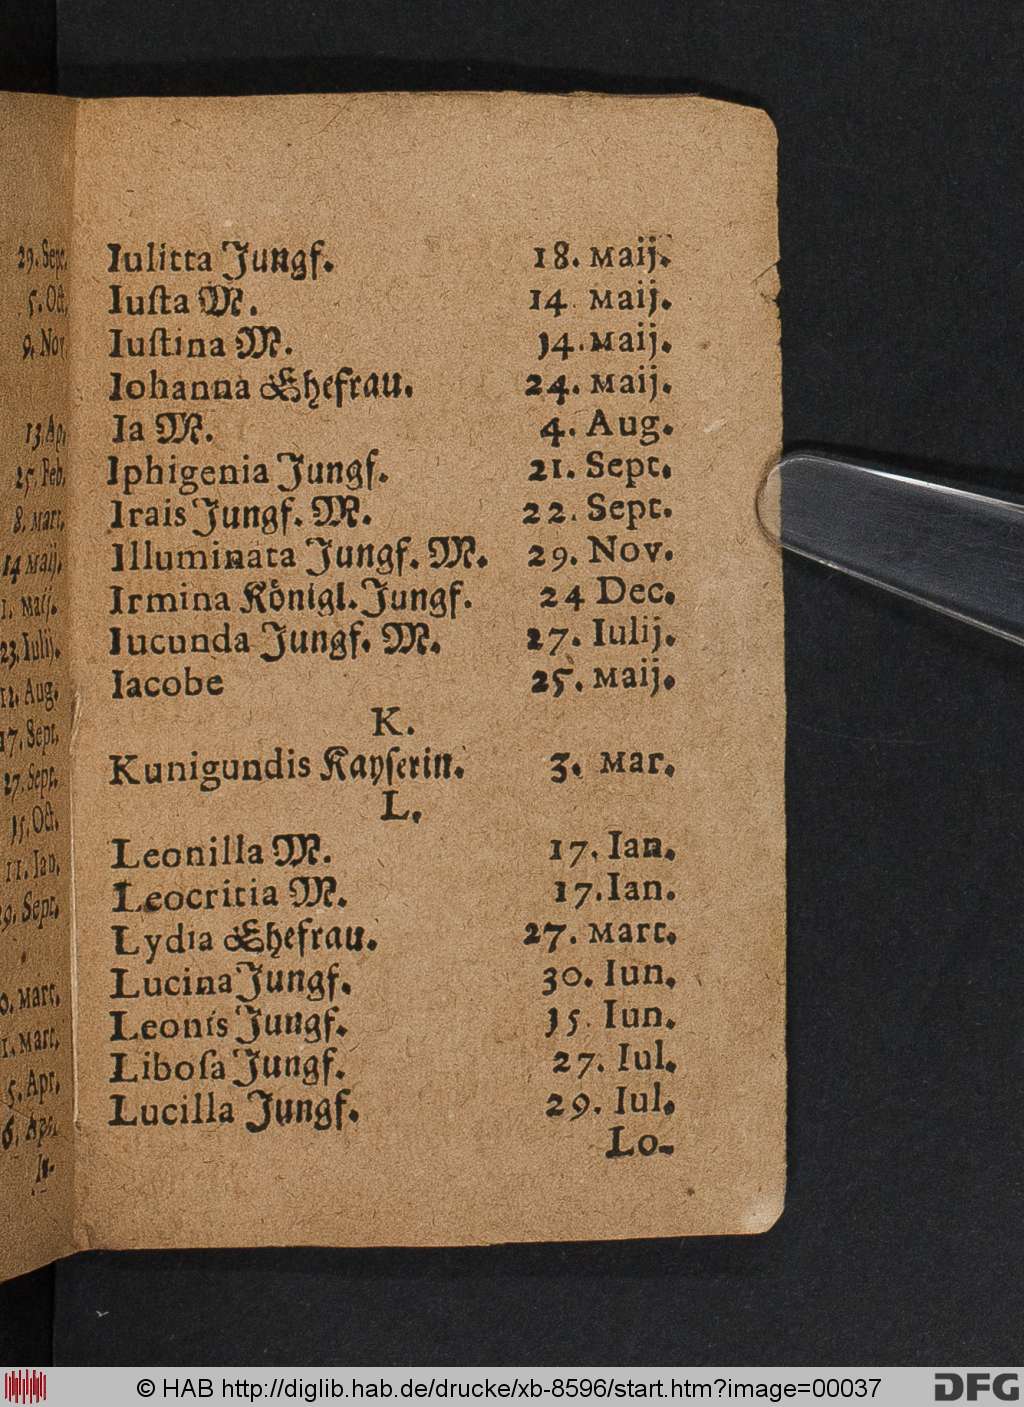 29. Sept.
5. Oct.
9. Nov.
13. Ap.
25. Feb.
8. Mart.
14 Maij.
1. Maij.
23. Iulij.
12. Aug.
17. Sept.
27. Sept.
15. Oct.
11. Ian.
29. Sept.
Mart.
Mart.
5. Apr.
6. Apr.
Iu-
Iulitta Jungf. 18. Maij.
Iuſta M. 14 Maij.
Iuſtina M. 14. Maij.
Iohanna Ehefrau. 24. Maij.
Ia M. 4. Aug.
Iphigenia Jungf. 21. Sept.
Irais Jungf. M. 22. Sept.
Illuminata Jungf. M. 29. Nov.
Irmina Koͤnigl. Jungf. 24 Dec.
Iucunda Jungf. M. 27. Iulij.
Iacobe 25. Maij.
K.
Kunigundis Kayſerin. 3. Mar.
L.
Leonilla M. 17. Ian.
Leocritia M. 17. Ian.
Lydia Ehefrau. 27. Mart.
Lucina Jungf. 30. Iun.
Leonis Jungf. 15. Iun.
Liboſa Jungf. 27. Iul.
Lucilla Jungf. 29. Iul.
Lo-
© HAB http://diglib.hab.de/drucke/xb-8596/start.htm?image=00037
DFG